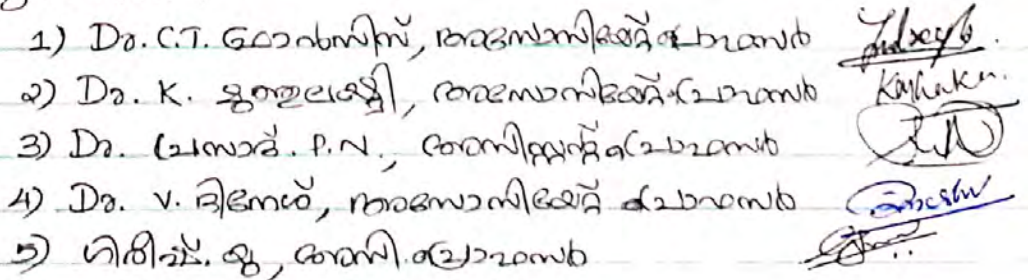 1) Dr. C.T. ഫ്രാൻസിസ്, അസോസിയേറ്റ് പ്രൊഫസർ
2) Dr. K. മുത്തുലക്ഷ്മി, അസോസിയേറ്റ് പ്രൊഫസർ
3) Dr. പ്രസാദ്. P.N., അസിസ്റ്റന്റ് പ്രൊഫസർ
4) Dr. V. ദിനേശ്, അസോസിയേറ്റ് പ്രൊഫസർ
5) ഗിരീഷ്. , അസി. പ്രൊഫസർ